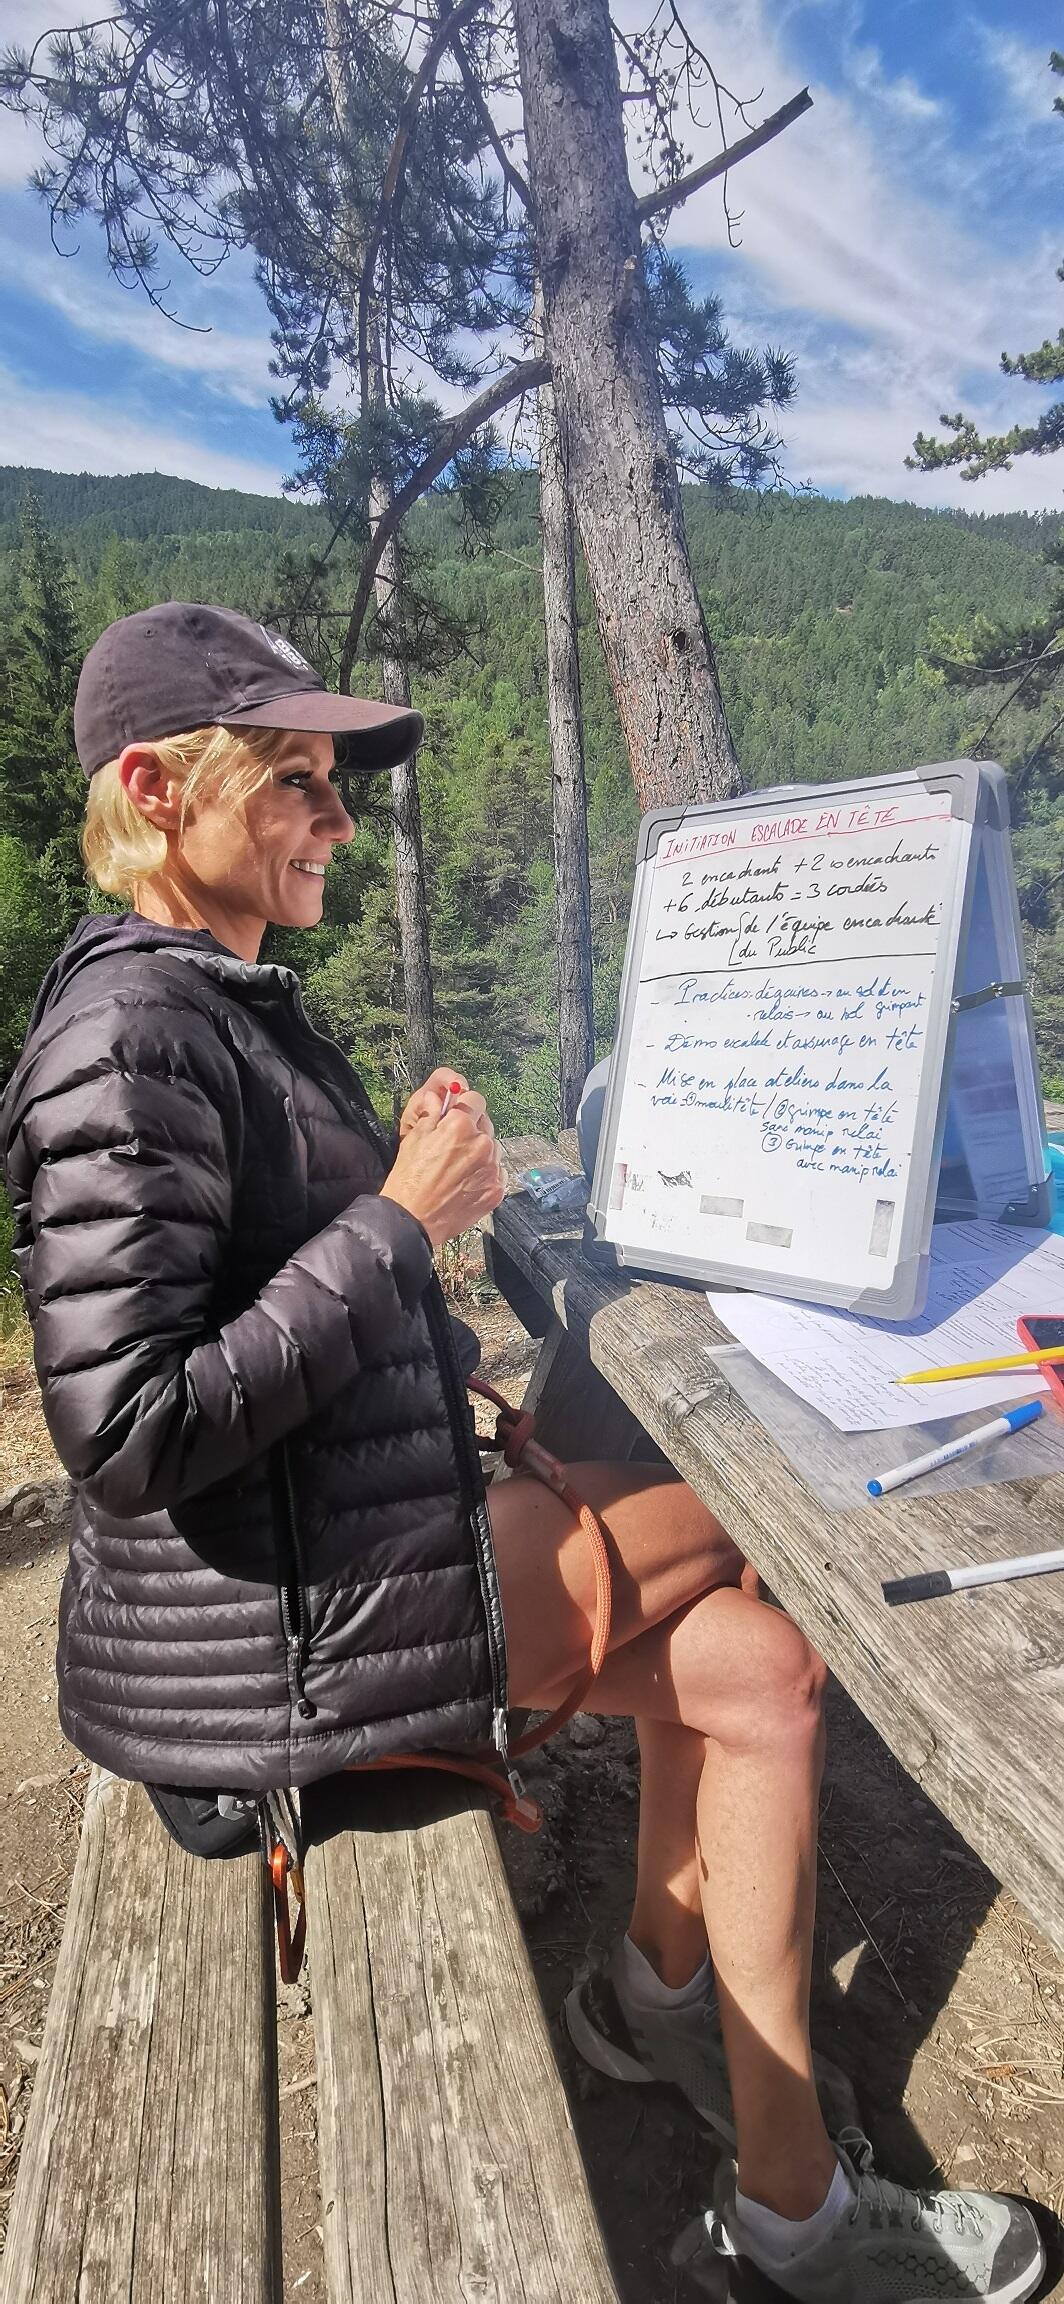 INITIATION ESCALADE EN TÊTE
2 encadrants + 2 coencadrants
+6 débutants = 3 cordées
↳ Gestion de l'équipe encadrante
du Public
- Practices: dégaines → au sol et en
relais → au sol grimpant
- Démo escalade et assurage en tête
- Mise en place ateliers dans la
voie = ① moulitête / ② grimpe en tête
sans manip relai
③ Grimpe en tête
avec manip relai